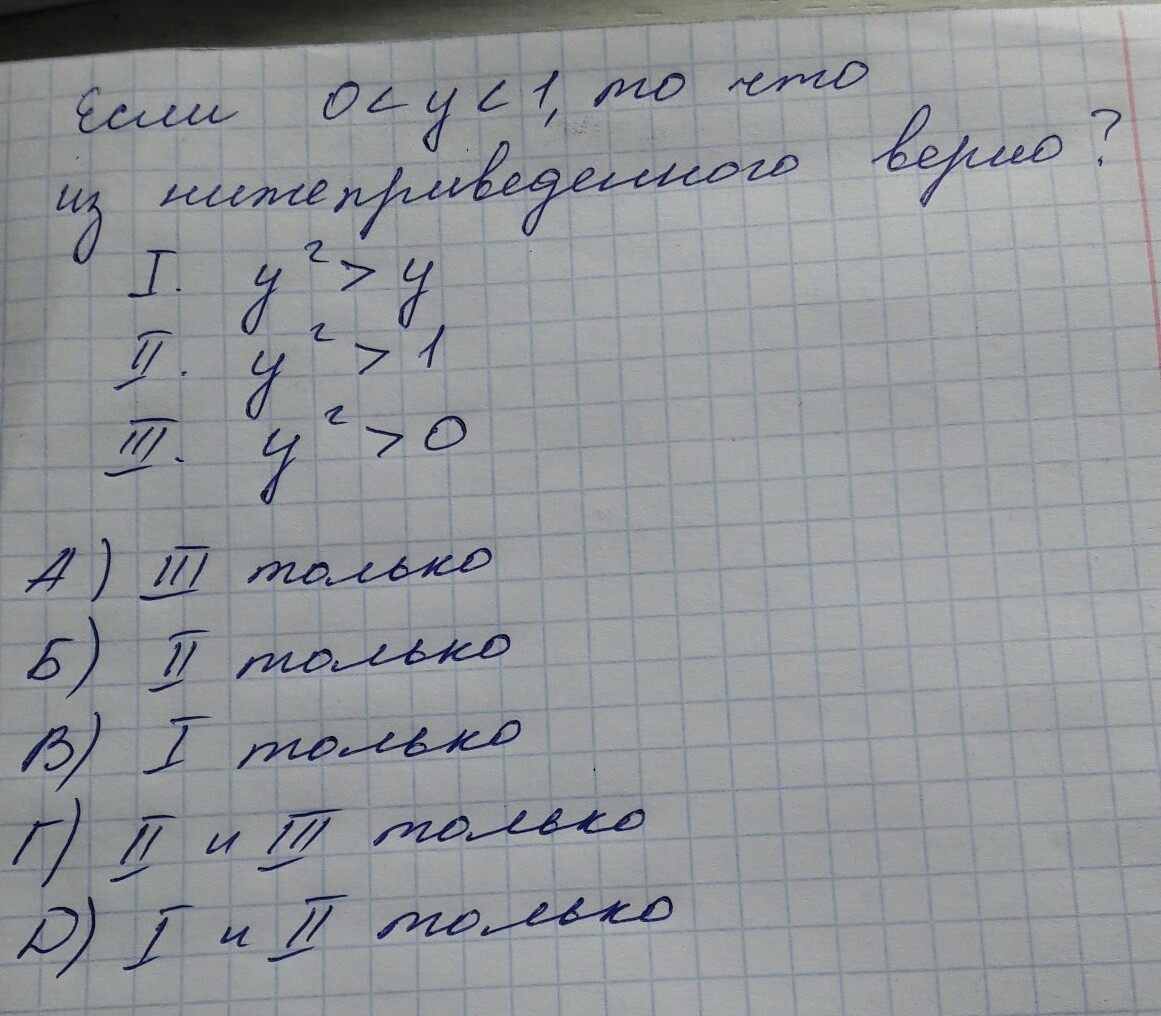 Если 0 < y < 1, то что
из нижеприведенного верно?
I. y² > y
II. y² > 1
III. y² > 0
А) III только
Б) II только
В) I только
Г) II и III только
D) I и II только